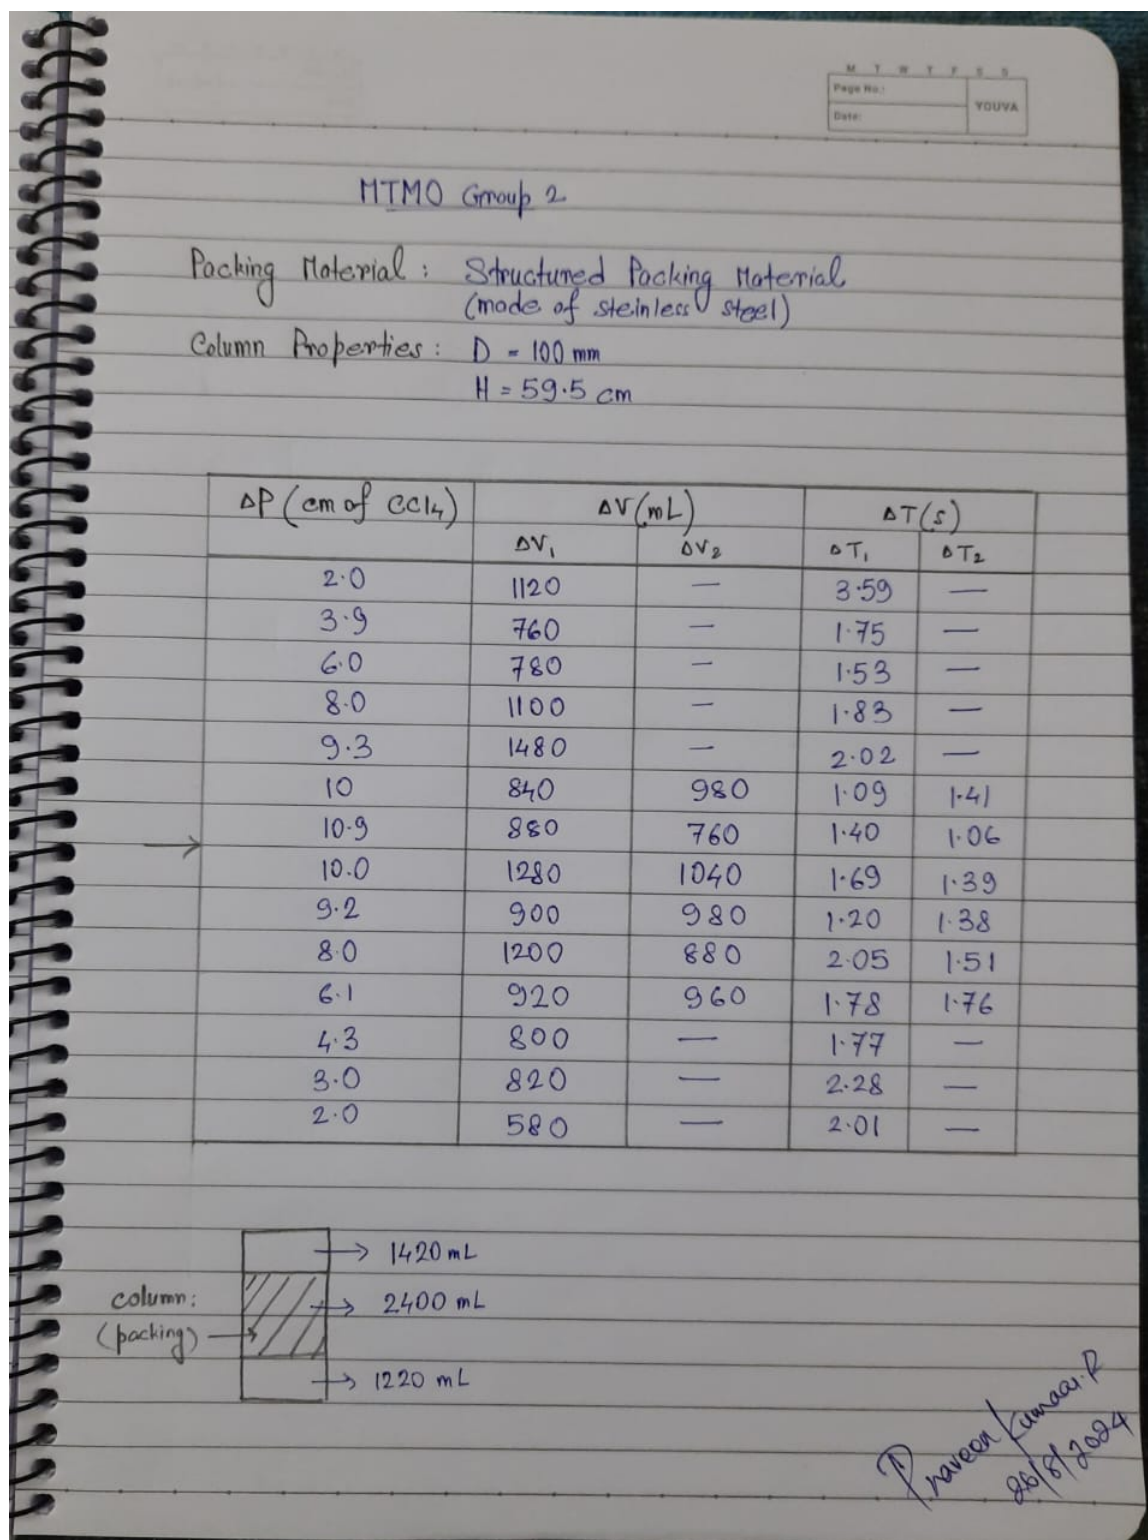 M T W T F S S
Page No.:
YOUVA
Date:
MTMO Group 2
Packing Material : Structured Packing Material
(made of steinless steel)
Column Properties : D = 100 mm
H = 59.5 cm
ΔP (cm of CCl4) ΔV (mL) ΔT (s)
ΔV1 ΔV2 ΔT1 ΔT2
2.0 1120 — 3.59 —
3.9 760 — 1.75 —
6.0 780 — 1.53 —
8.0 1100 — 1.83 —
9.3 1480 — 2.02 —
10 840 980 1.09 1.41
→ 10.9 880 760 1.40 1.06
10.0 1280 1040 1.69 1.39
9.2 900 980 1.20 1.38
8.0 1200 880 2.05 1.51
6.1 920 960 1.78 1.76
4.3 800 — 1.77 —
3.0 820 — 2.28 —
2.0 580 — 2.01 —
→ 1420 mL
column: → 2400 mL
(packing) →
→ 1220 mL
Praveen Kumaar.R
26/8/2024